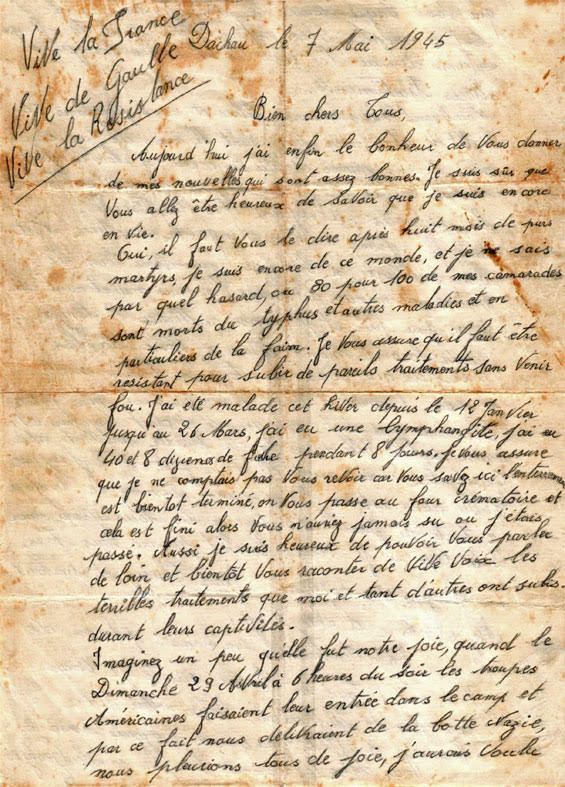 Vive la France
Vive de Gaulle
Vive la Resistance
Dachau le 7 Mai 1945
Bien chers Tous,
Aujourd'hui j'ai enfin le bonheur de vous donner
de mes nouvelles qui sont assez bonnes. Je suis sûr que
Vous allez être heureux de savoir que je suis encore
en vie.
Oui, il faut vous le dire après huit mois de purs
martyrs, je suis encore de ce monde, et je ne sais
par quel hasard, ou 80 pour 100 de mes camarades
sont morts du typhus et autres maladies et en
particuliers de la faim. Je vous assure qu'il faut être
resistant pour subir de pareils traitements sans venir
fou. J'ai été malade cet hiver depuis le 12 Janvier
jusqu'au 26 Mars, j'ai eu une lymphangite, j'ai eu
40 et 8 dizenes de fièvre pendant 8 jours, je vous assure
que je ne comptais pas vous revoir car vous savez ici l'enterrement
est bientot terminé, on vous passe au four crématoire et
cela est fini alors vous n'auriez jamais su ou j'étais
passé. Aussi je suis heureux de pouvoir vous parler
de loin et bientôt vous raconter de vive voix les
terribles traitements que moi et tant d'autres ont subis
durant leurs captivités.
Imaginez un peu qu'elle fut notre joie, quand le
Dimanche 29 Avril à 6 heures du soir les troupes
Américaines faisaient leur entrée dans le camp et
par ce fait nous délivraient de la botte Nazie,
nous pleurions tous de joie, j'aurais voulu